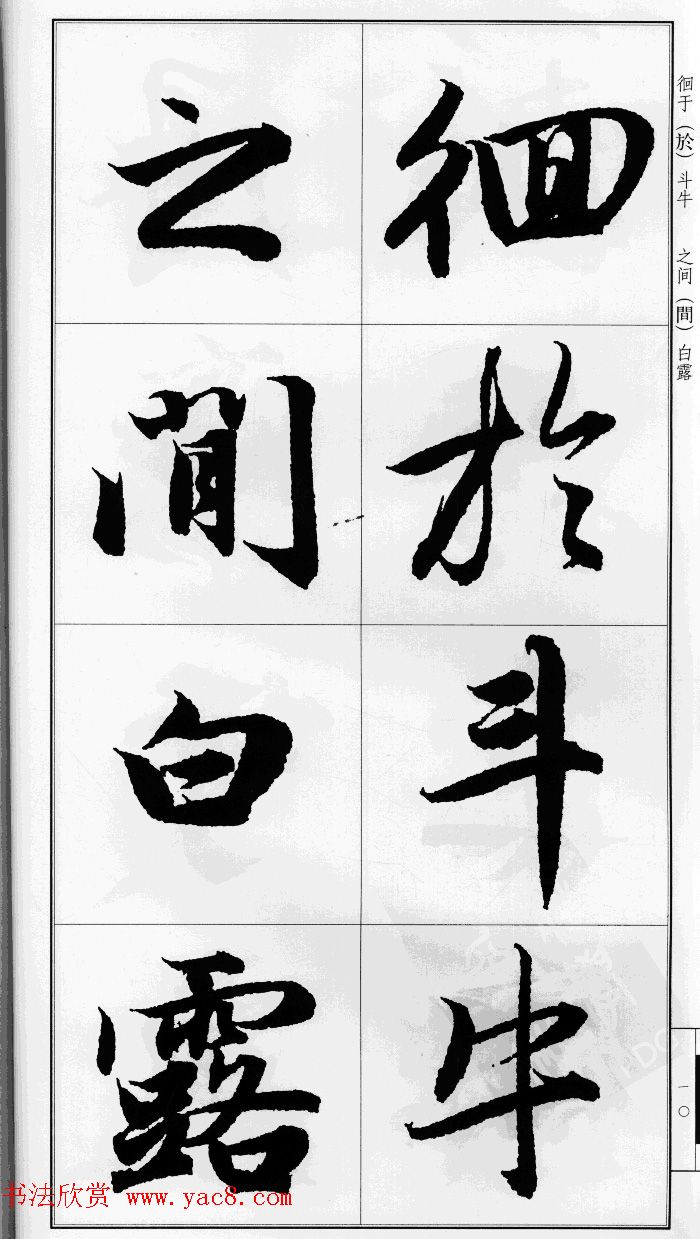 徊於斗牛
之間白露
徊于（於）斗牛　之间（間）白露
一〇
书法欣赏 www.yac8.com